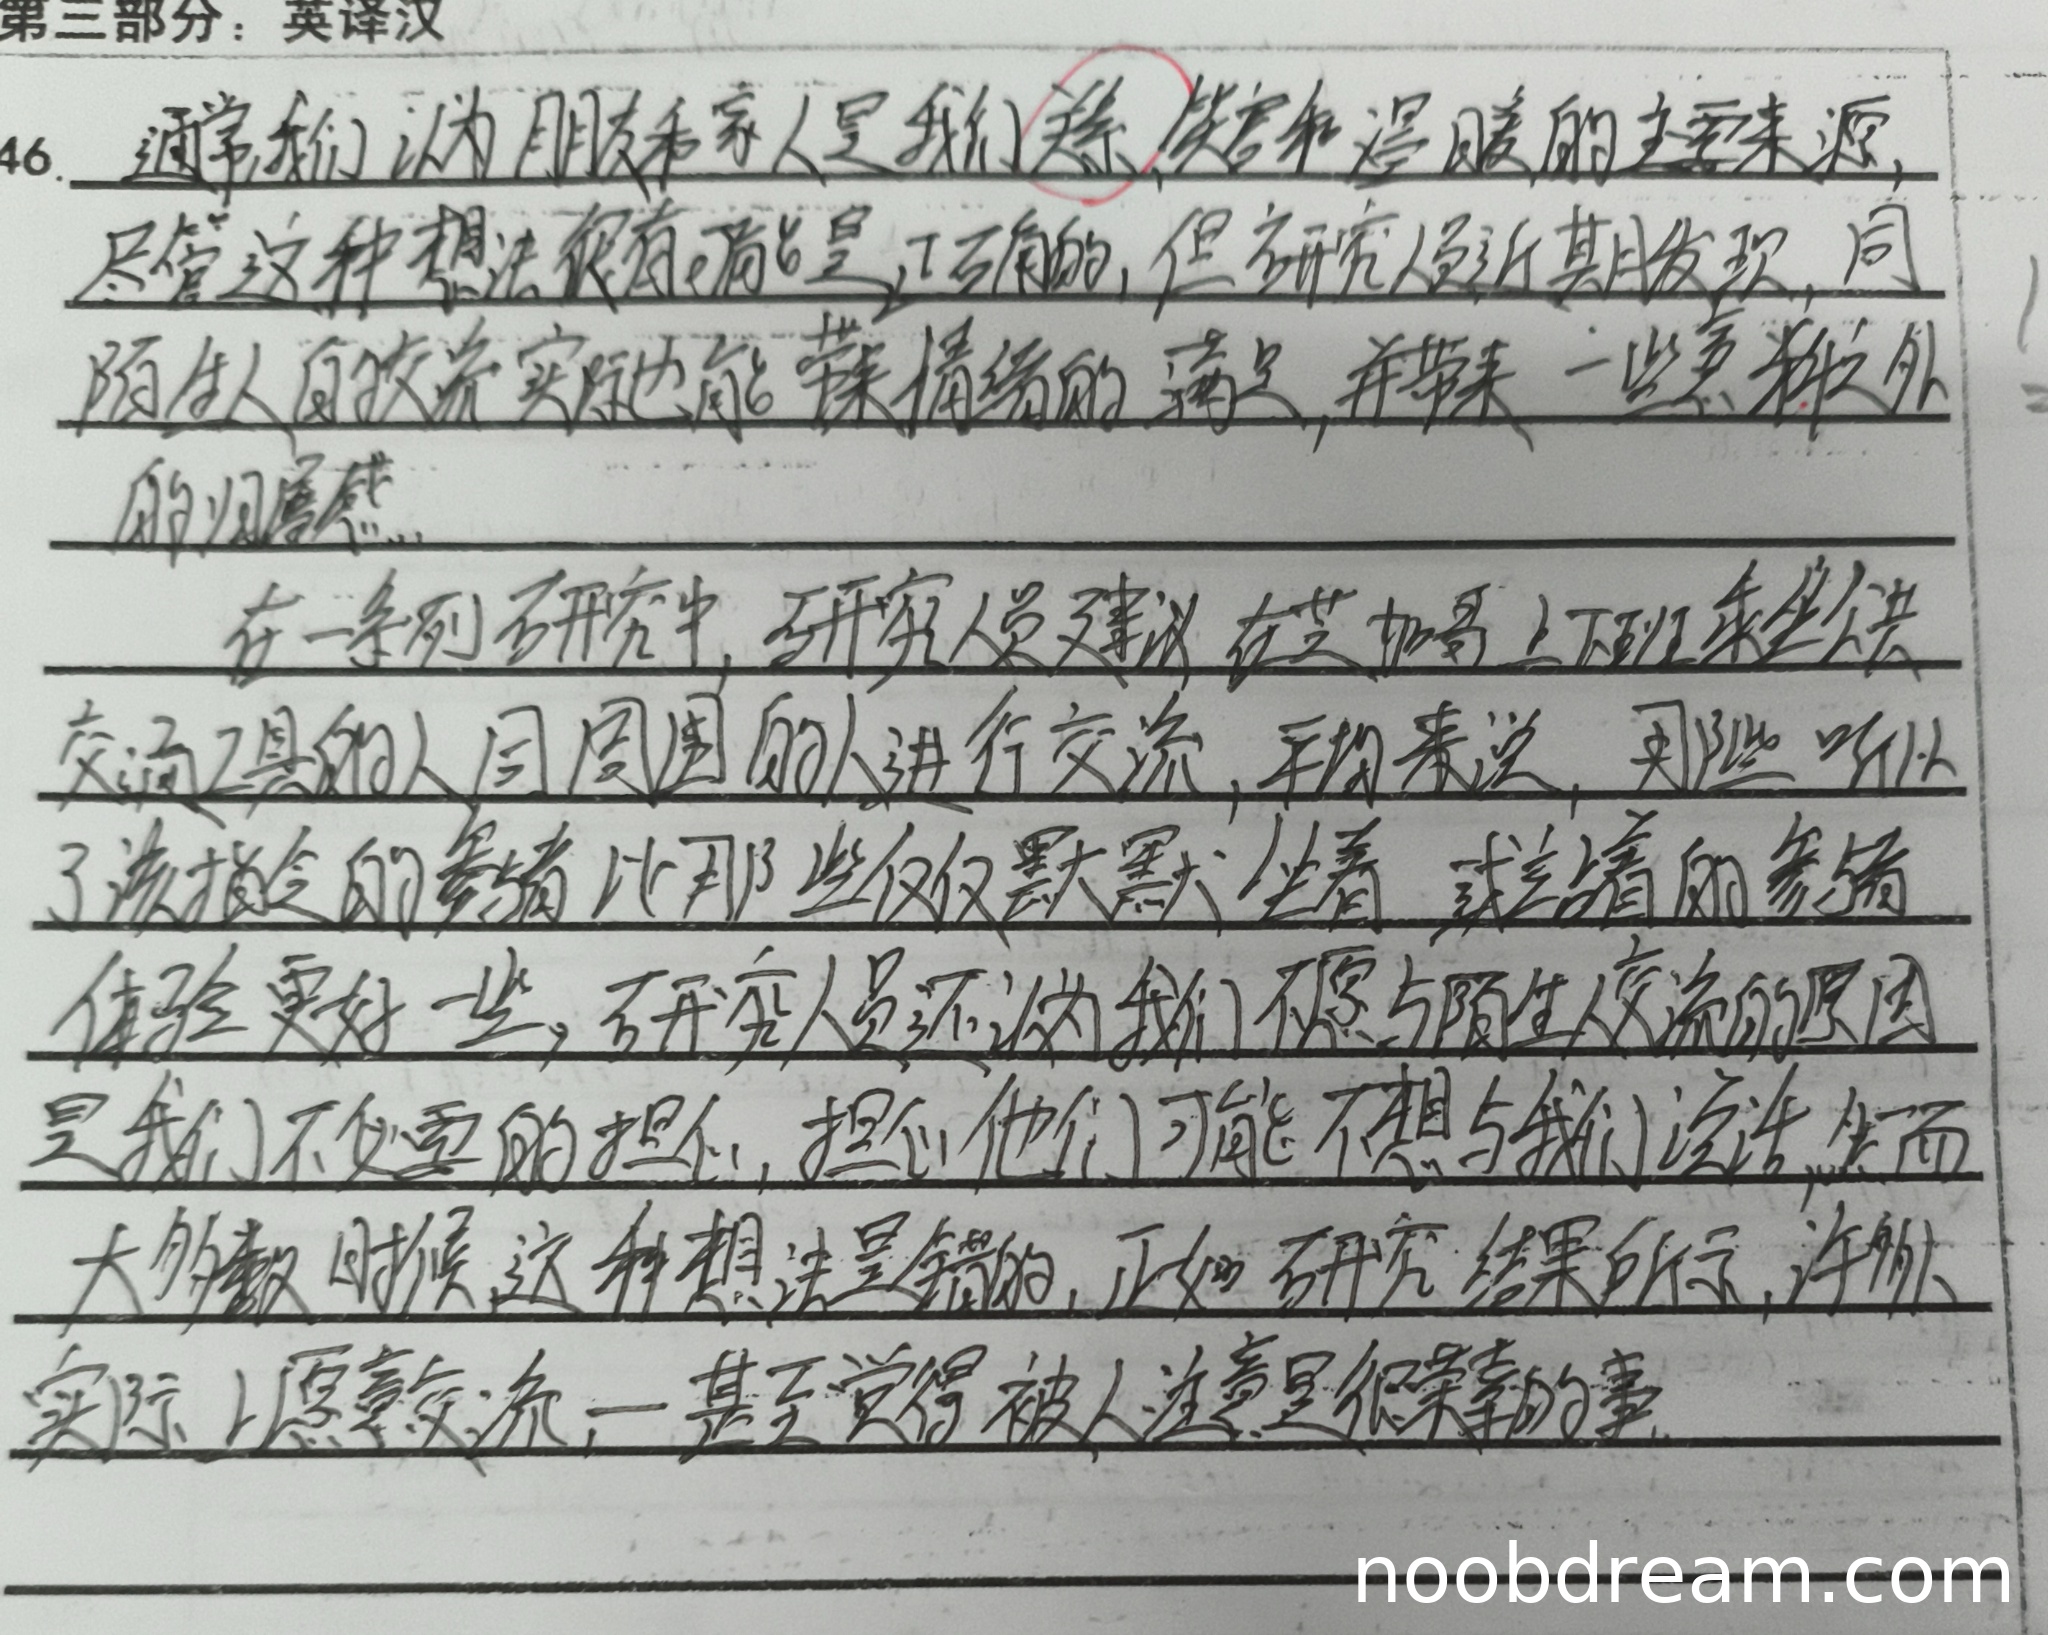 第三部分：英译汉
46. 通常我们认为朋友和家人是我们关系,笑容和温暖的主要来源,
尽管这种想法很有可能是正确的,但研究人员近期发现,同
陌生人的交流实际也能带来情绪的满足,并带来一些意料之外
的归属感.
在一系列研究中,研究人员建议在芝加哥上下班乘坐公共
交通工具的人同周围的人进行交流,平均来说,那些听从
了该指令的参与者比那些仅仅默默坐着或站着的参与者
体验更好一些,研究人员还认为我们不愿与陌生人交流的原因
是我们不必要的担心,担心他们可能不想与我们谈话,然而
大多数时候这种想法是错的,正如研究结果所示,许多人
实际上愿意交流,一甚至觉得被人注意是很荣幸的事.
noobdream.com